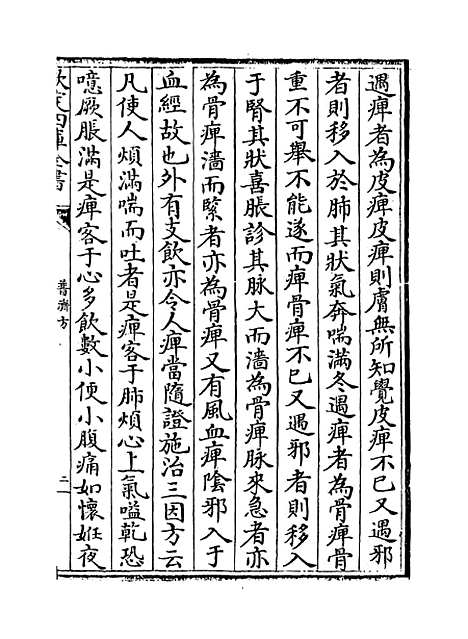 遇痺者為皮痺皮痺則膚無所知覺皮痺不已又遇邪
者則移入於肺其狀氣奔喘滿冬遇痺者為骨痺骨
重不可舉不能遂而痺骨痺不已又遇邪者則移入
于腎其狀喜脹診其脉大而濇為骨痺脉來急者亦
為骨痺濇而緊者亦為骨痺又有風血痺隂邪入于
血經故也外有支飲亦令人痺當隨證施治三因方云
凡使人煩滿喘而吐者是痺客于肺煩心上氣嗌乾恐
噫厥脹滿是痺客于心多飲數小便小腹痛如懷姙夜
欽定四庫全書
普濟方
二